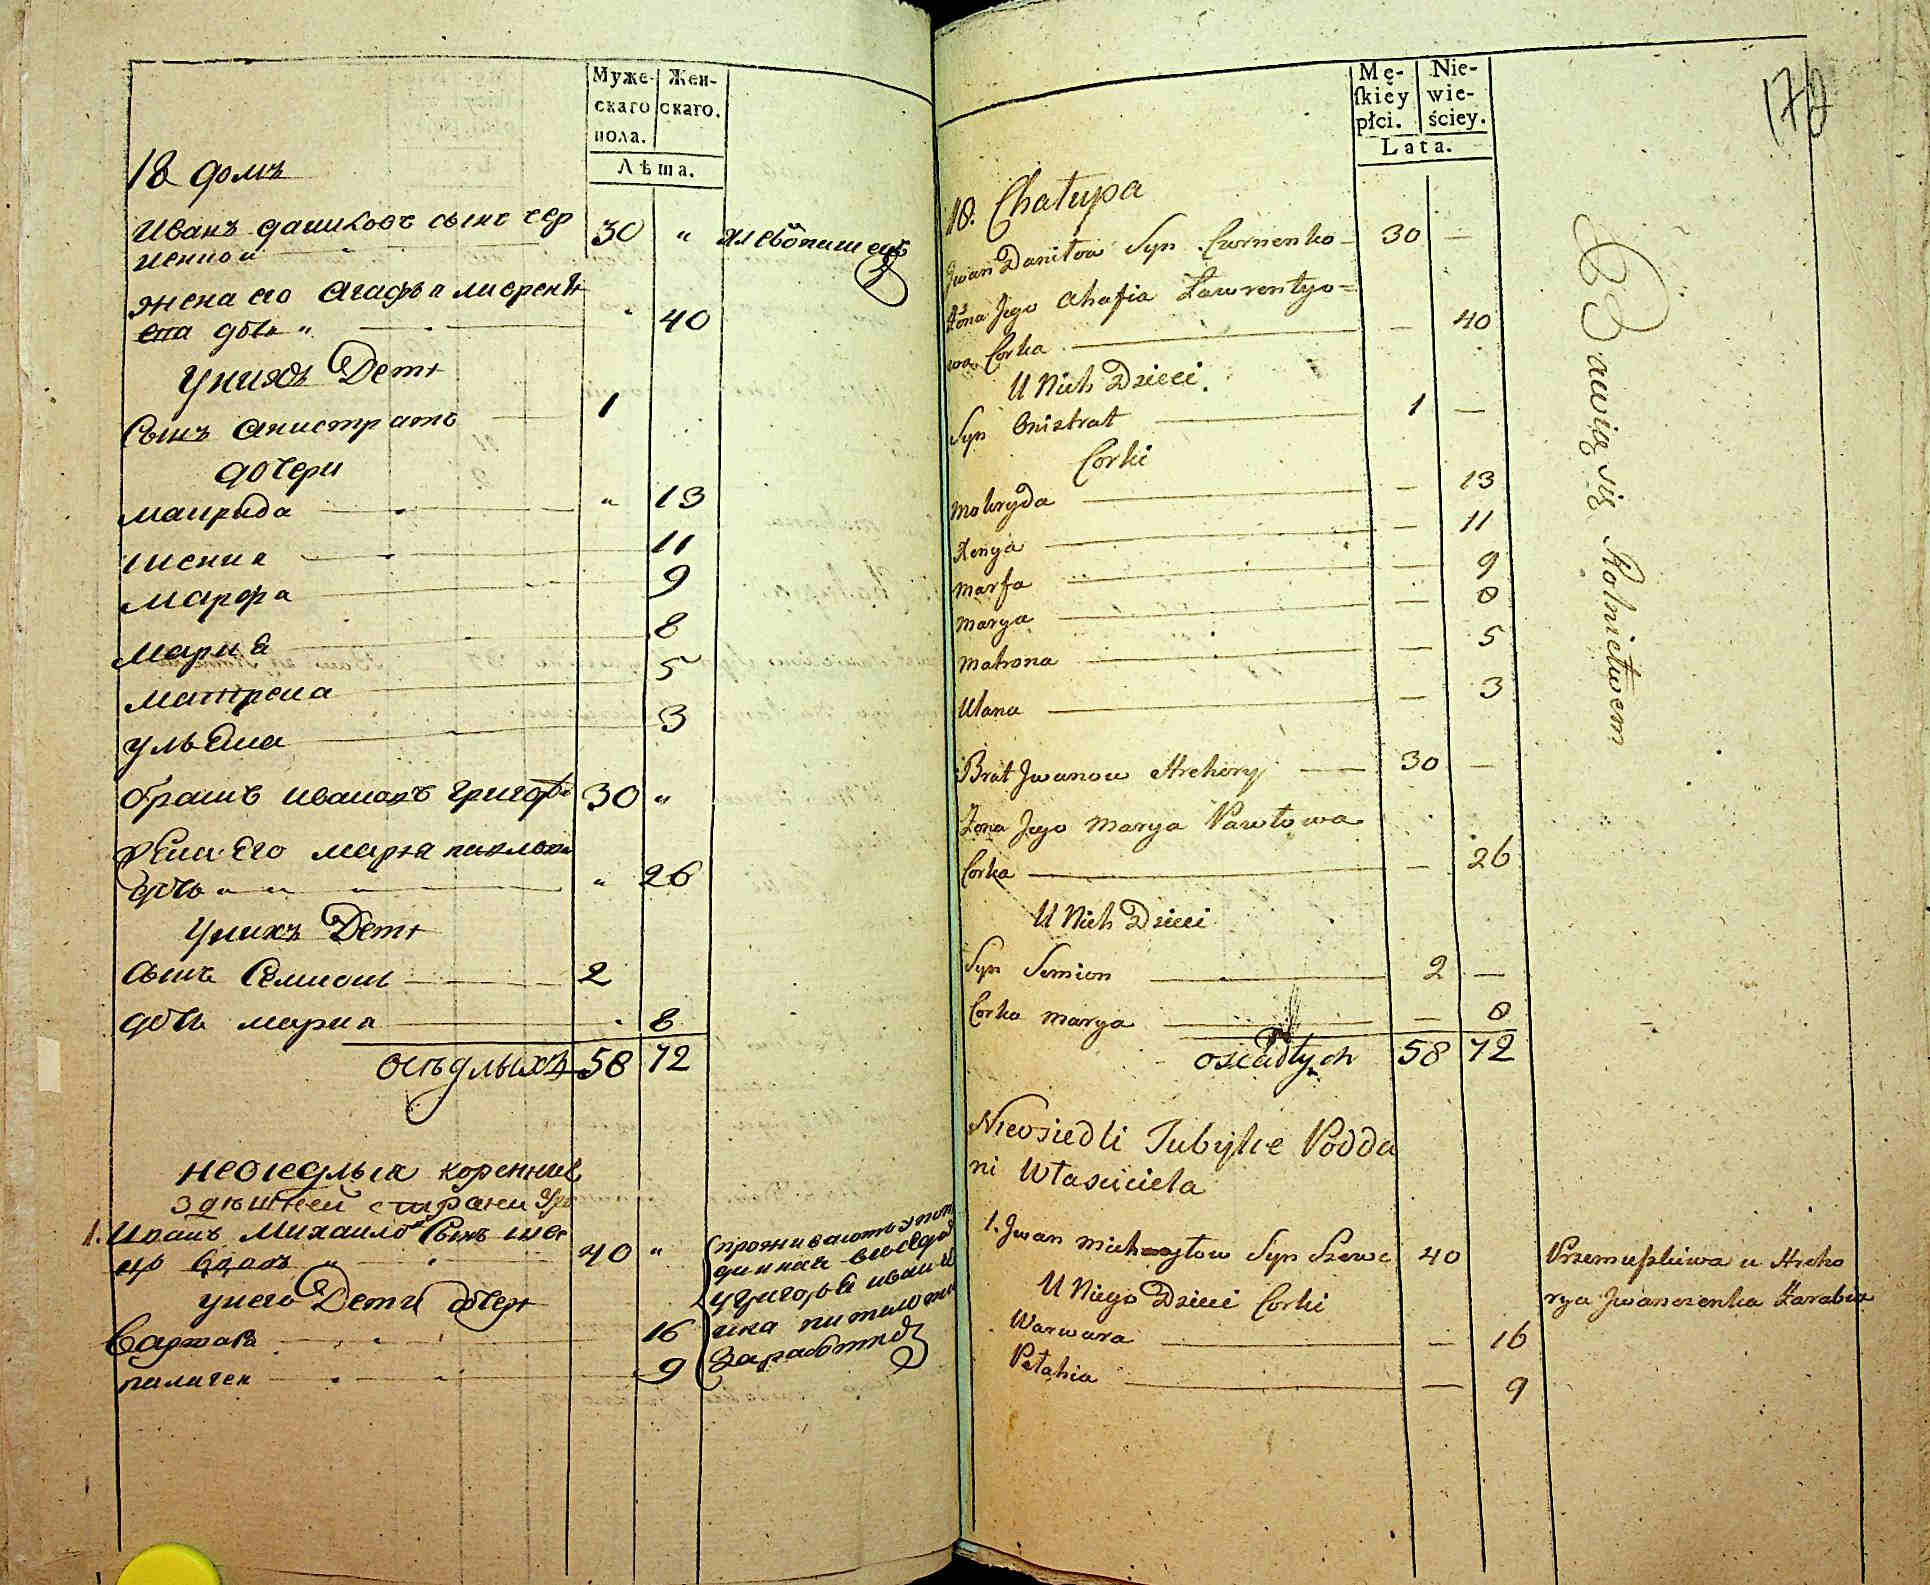 Муже-
скаго
пола.
Жен-
скаго.
Лѣта.
18 домъ
Иванъ даниловъ сынъ чер
ненкои
30 "
хлебопашецъ
жена его Агафья лаврентъ
ева дочь "
40
у нихъ Дети
Сынъ Анистратъ 1
дочери
макрида " 13
ксения 11
Марфа 9
Мария 8
матрена 5
ульяна 3
братъ ивановъ григорѣ 30 "
жена Его марья павлова
дочь " " " 26
у нихъ Дети
сынъ Семионъ 2
дочь мария 8
осѣдлыхъ 58 72
неоседлыя коренные
здѣшней старани
1. Иванъ Михаиловъ Сынъ шве
цъ вдовъ " 40 "
у него Дети дочери
Варвара 16
палагея 9
проживаютъ
у григорья ивани
заработке
Mę-
ſkiéy
płci.
Nie-
wie-
ściey.
Lata.
179
18. Chałupa
Jwan Daniłow Syn Czornenko 30 —
Żona Jego Ahafia Ławrentyo=
wa Corka — 40
U Nich Dzieci.
Syn Onistrat 1 —
Corki
Mokryda — 13
Xenya — 11
Marfa — 9
Marya — 8
Matrona — 5
Ulana — 3
Brat Jwanow Hrehory 30 —
Żona Jego Marya Pawłowa
Corka — 26
U Nich Dzieci
Syn Semion 2 —
Corka Marya — 8
osiadłych 58 72
Bawią się Rolnictwem
Nieosiedli Tubylce Podda
ni Własciciela
1. Jwan Michayłow Syn Szewc 40
Przemieszkiwa u Hreho
rya Jwanczenka Zarabia
U Niego Dzieci Corki
Warwara — 16
Pełahia — 9